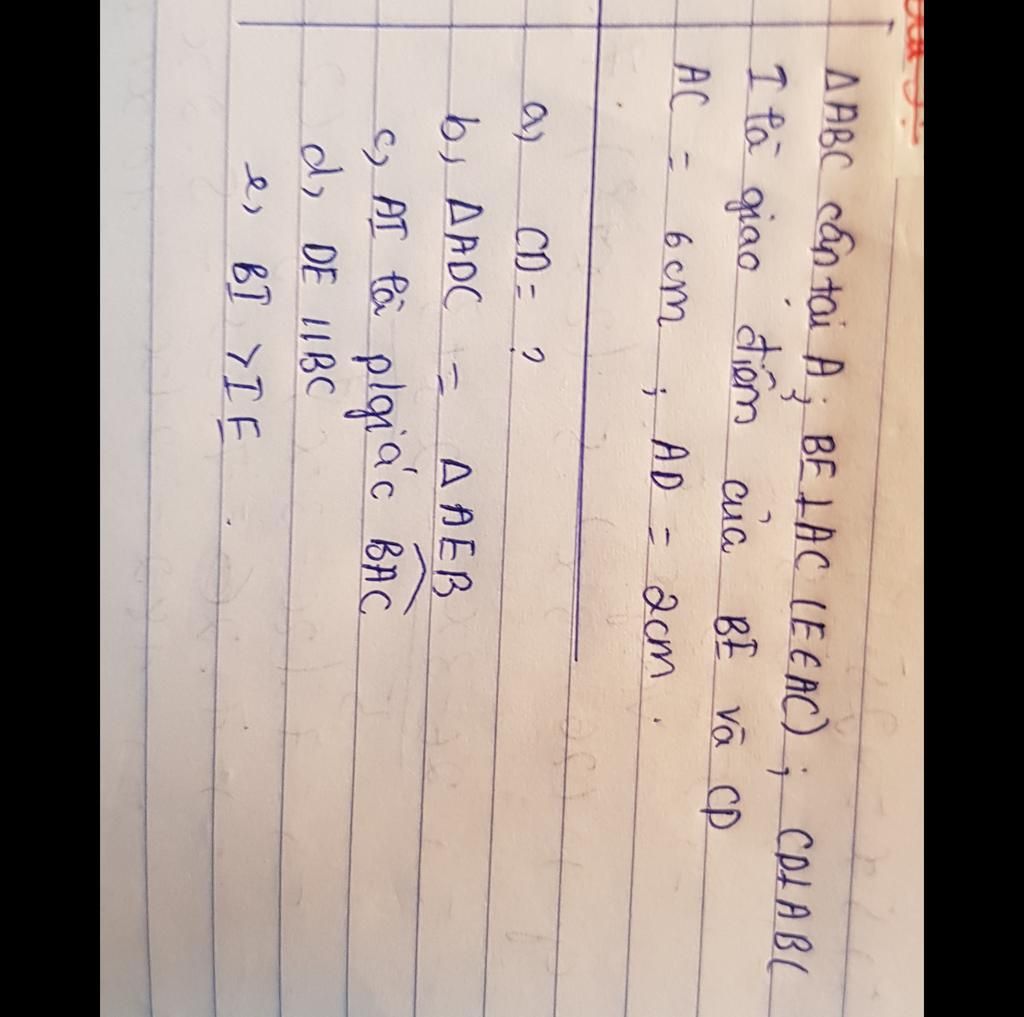 ΔABC cân tại A; BE⊥AC (E∈AC); CD⊥AB(
I là giao điểm của BE và CD
AC = 6cm ; AD = 2cm.
a, CD= ?
b, ΔADC = ΔAEB
c, AI là p/giác BAC
d, DE // BC
e, BI > IE.